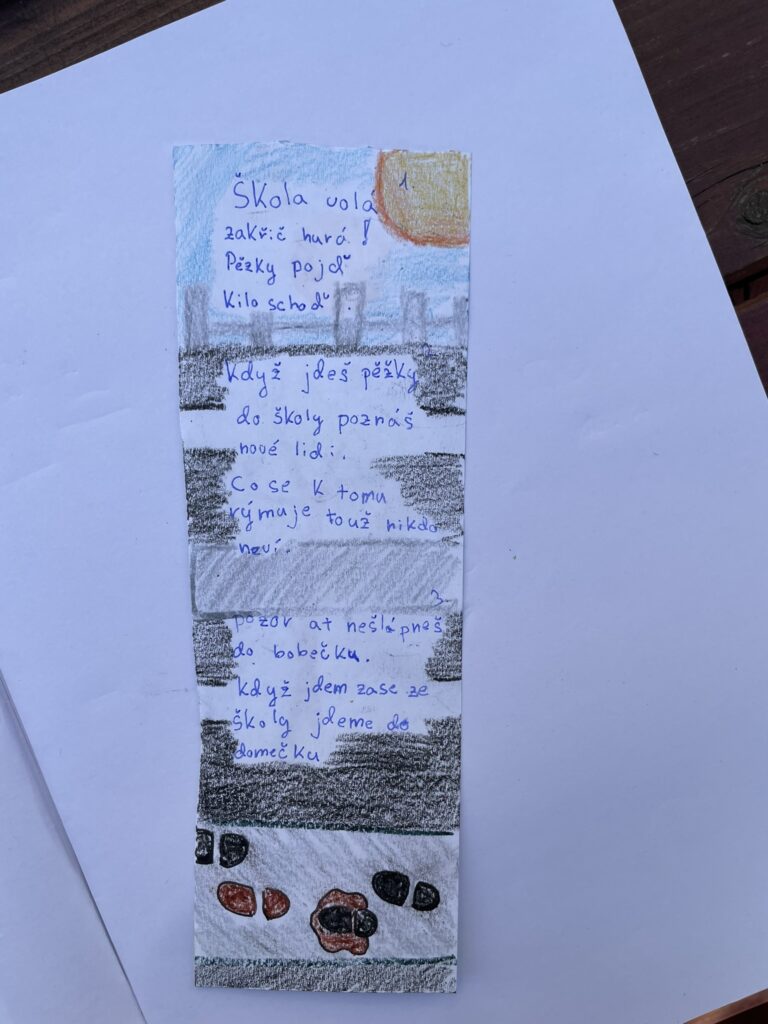 1.
Škola volá
zakřič hurá!
Pězky pojď
Kilo schoď.
2
Když jdeš pěžky
do školy poznáš
nové lidi.
Co se k tomu
rýmuje touž nikdo
neví.
3
pozor at nešlápneš
do bobečku.
Když jdem zase ze
školy jdeme do
domečku